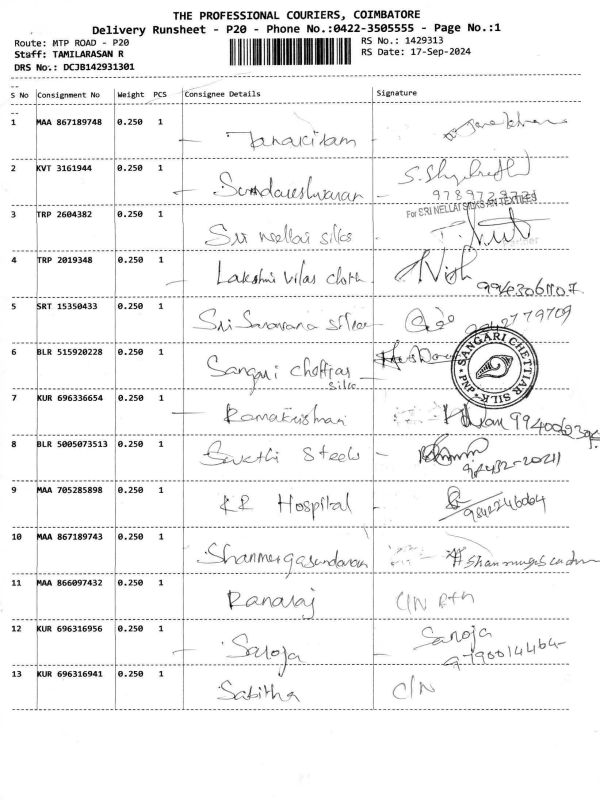 THE PROFESSIONAL COURIERS, COIMBATORE
Delivery Runsheet - P20 - Phone No.:0422-3505555 - Page No.:1
Route: MTP ROAD - P20 RS No.: 1429313
Staff: TAMILARASAN R RS Date: 17-Sep-2024
DRS No.: DCJB142931301
S No Consignment No Weight PCS Consignee Details Signature
1 MAA 867189748 0.250 1 Janakiram
2 KVT 3161944 0.250 1 Sundareshwaran
3 TRP 2604382 0.250 1 Sri Nellai silks
For SRI NELLAI SILKS
4 TRP 2019348 0.250 1 Lakshmi Vilas cloth
5 SRT 15350433 0.250 1 Sri Saravana silks
6 BLR 515920228 0.250 1 Sangari Chettiar silks
SANGARI CHETTIAR SILK PNP
7 KUR 696336654 0.250 1 Ramakrishnan
8 BLR 5005073513 0.250 1 Sakthi Steels
9 MAA 705285898 0.250 1 KR Hospital
9842246064
10 MAA 867189743 0.250 1 Shanmugasundaram
11 MAA 866097432 0.250 1 Ranaraj C/N
12 KUR 696316956 0.250 1 Saroja Saroja
9790014464
13 KUR 696316941 0.250 1 Sabitha C/N